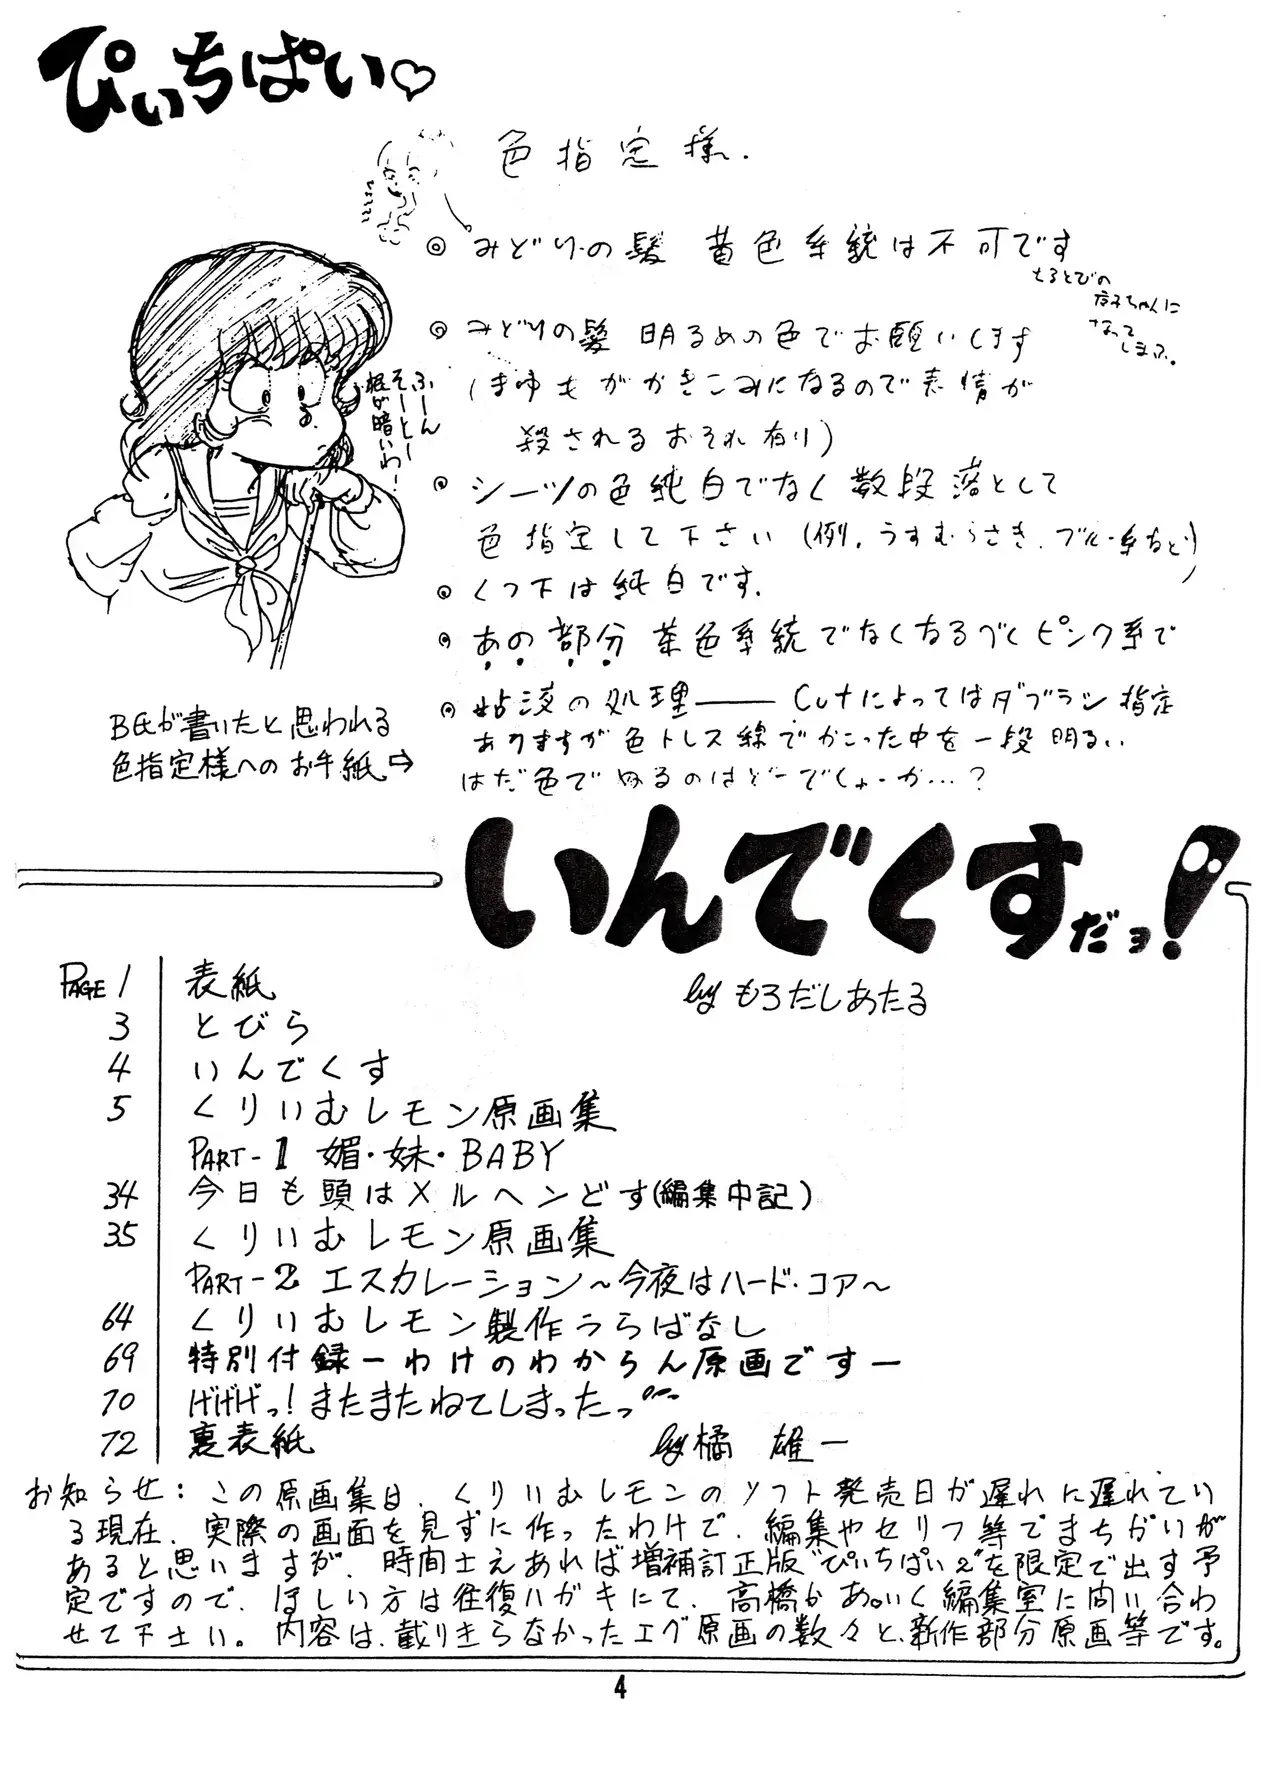 ぴぃちぱい♡
色指定様.
◎ みどりの髪 黄色系統は不可です
なってしまふ。
◎ みどりの髪 明るめの色でお願いします
(まゆもがかきこみになるので表情が
殺されるおそれ有り)
ふーん
そーとー
根が暗いわ!
◎ シーツの色純白でなく数段落として
色指定して下さい(例. うすむらさき. ブルー系など)
◎ くつ下は純白です.
◎ あの部分 茶色系統でなくなるべくピンク系で
◎ 粘液の処理―― Cutによってはダブラシ指定
ありますが色トレス線でかこった中を一段明るい
はだ色でぬるのはどーでしょーか…?
B氏が書いたと思われる
色指定様へのお手紙⇨
いんでくすだョ!
by もろだしあたる
PAGE 1 表紙
3 とびら
4 いんでくす
5 くりいむレモン原画集
PART-1 媚・妹・BABY
34 今日も頭はメルヘンどす(編集中記)
35 くりいむレモン原画集
PART-2 エスカレーション~今夜はハード・コア~
64 くりいむレモン製作うらばなし
69 特別付録ーわけのわからん原画ですー
70 げげげっ!またまたねてしまったっ
72 裏表紙 by 橘 雄一
お知らせ: この原画集は、くりいむレモンのソフト発売日が遅れに遅れてい
る現在、実際の画面を見ずに作ったわけで、編集やセリフ等でまちがいが
あると思いますが、時間さえあれば増補訂正版“ぴいちぱい2”を限定で出す予
定ですので、ほしい方は往復ハガキにて、高橋かあ。いく編集室に問い合わ
せて下さい。内容は、載りきらなかったエグ原画の数々と、新作部分原画等です。
4